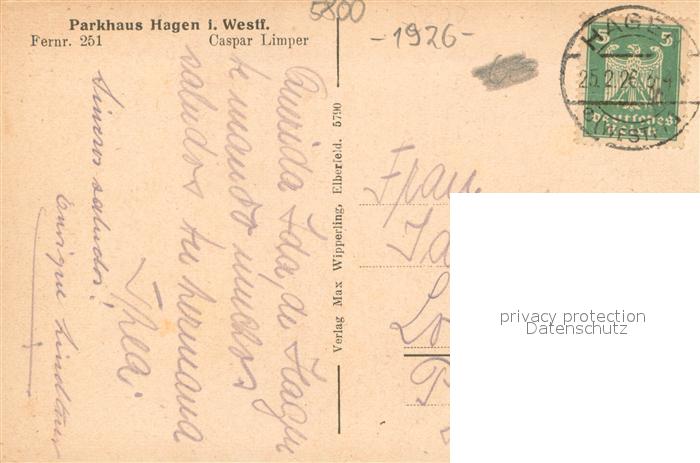 Parkhaus Hagen i. Westf.
Fernr. 251 Caspar Limper
5800
-1926-
HAGEN
25.2.26
3 3
Deutsches
Reich
Querida Ida, de Hagen
te mando muchos
saludos tu hermana
Thea.
Sinceros saludos!
Enrique Lindtner
Verlag Max Wipperling, Elberfeld. 5790
Frau
privacy protection
Datenschutz